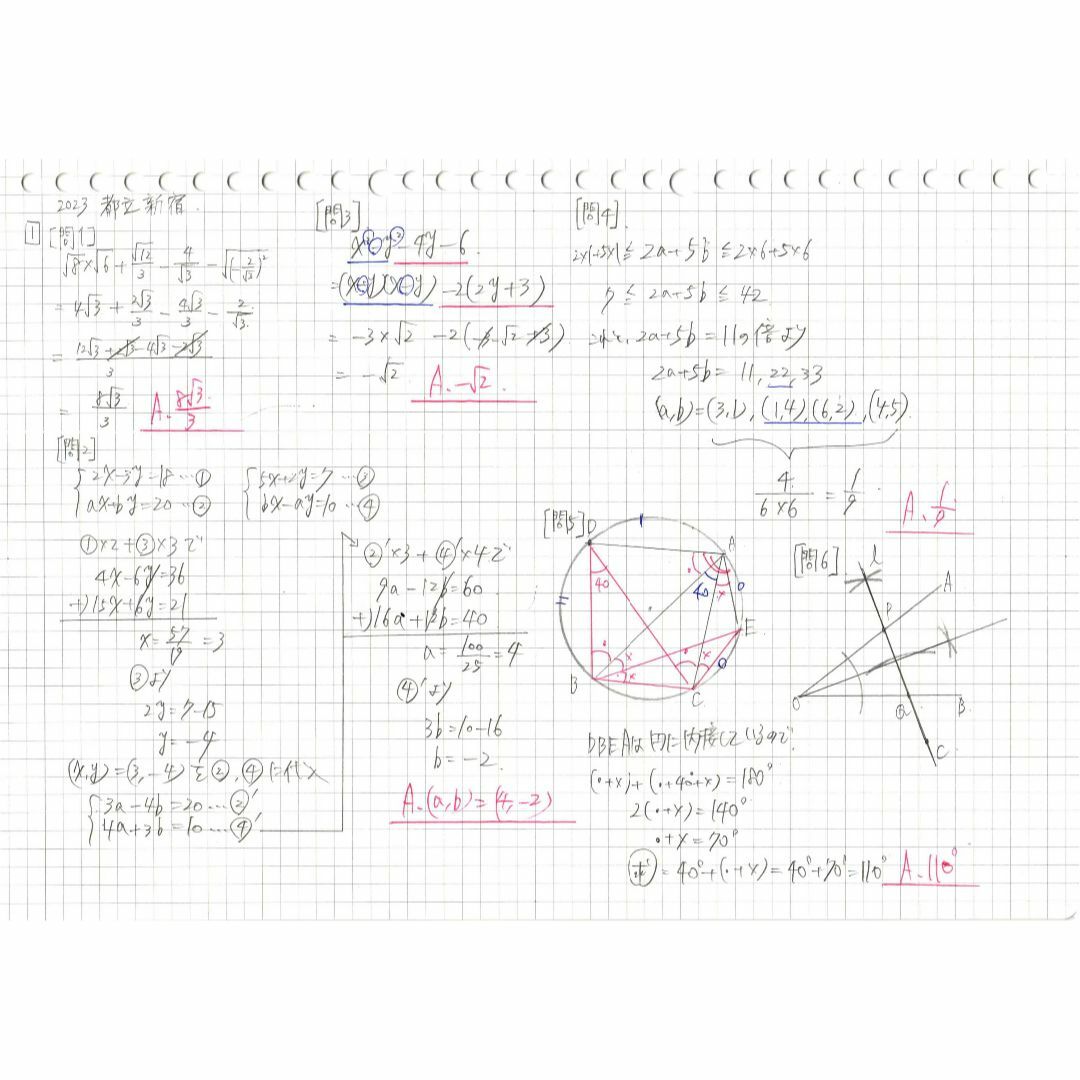 2023 都立新宿.
1 [問1]
√8×√6+√12/3-4/√3-√(-2/√3)²
=4√3+2√3/3-4√3/3-2/√3.
=(12√3+2√3-4√3-2√3)/3
=8√3/3 A.8√3/3
[問2]
{2x-3y=18…①
ax+by=20…②
{5x+2y=7…③
bx-ay=10…④
①×2+③×3で
4x-6y=36
+)15x+6y=21
x=57/19=3
③より
2y=7-15
y=-4
(x,y)=(3,-4)を②,④に代入
{3a-4b=20…②'
4a+3b=10…④'
②'×3+④'×4で
9a-12b=60
+)16a+12b=40
a=100/25=4
④'より
3b=10-16
b=-2.
A.(a,b)=(4,-2)
[問3]
x²-y²-4y-6.
=(x+y)(x-y)-2(2y+3)
=-3×√2 -2(-3-√2+3)
=-√2. A.-√2.
[問4].
2×1+5×1≦2a+5b≦2×6+5×6
7≦2a+5b≦42.
2a+5b=11の倍より
2a+5b=11,22,33
(a,b)=(3,1),(1,4),(6,2),(4,5).
4/6×6=1/9. A.1/9.
[問5]
D
A
40
40
×
E
×
×
B
2×
C
DBEAは円に内接しているので.
(・+×)+(・+40+×)=180°
2(・+×)=140°
・+×=70°
求=40°+(・+×)=40°+70°=110° A.110°
[問6].
l
A
P
O
Q
B.
C.